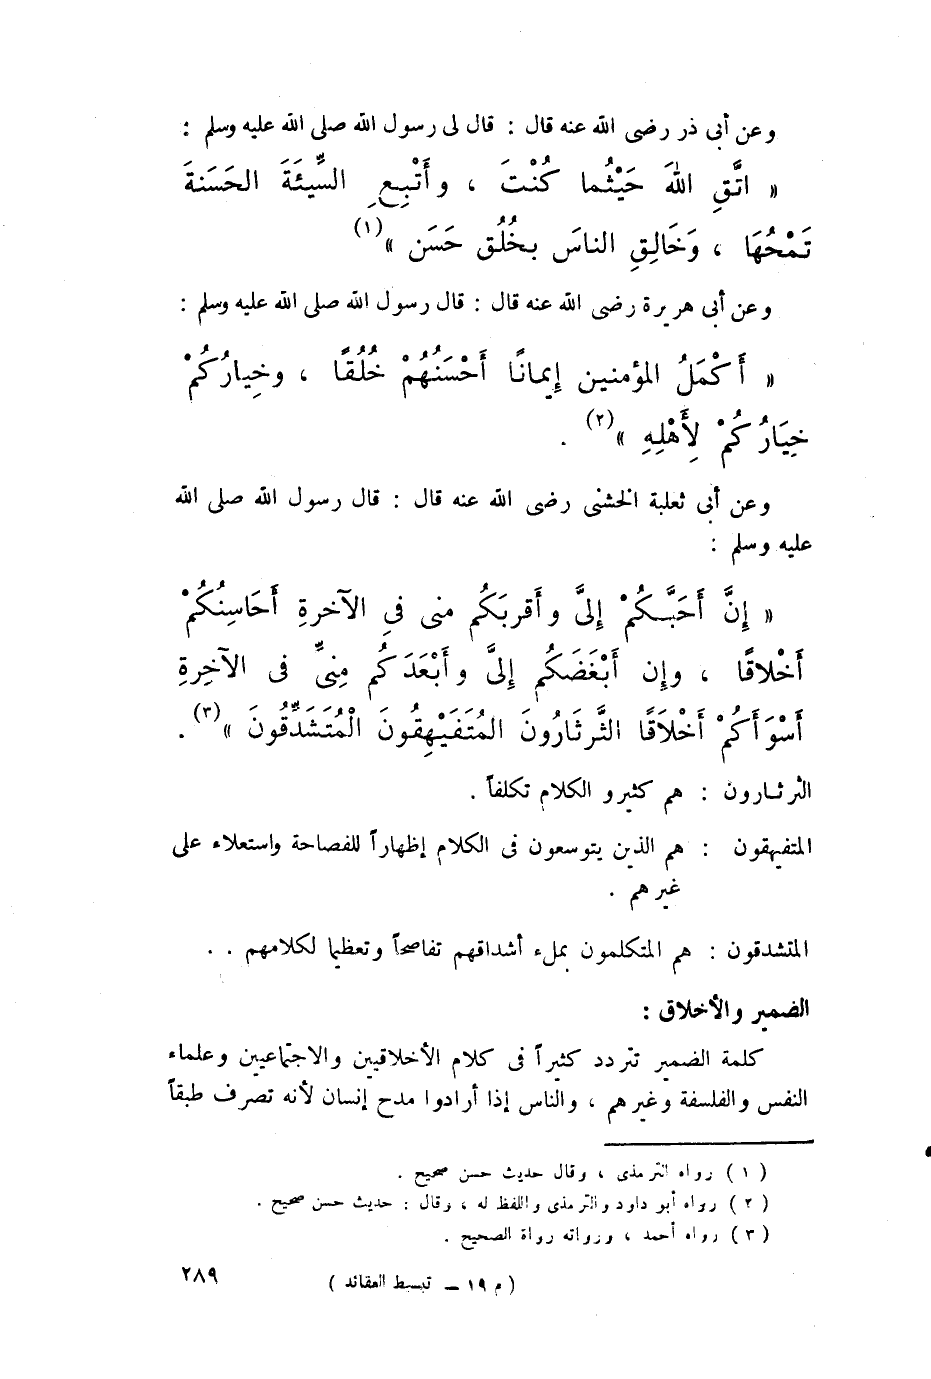 وعن أبى ذر رضى الله عنه قال : قال لى رسول الله صلى الله عليه وسلم :
« اتَّقِ اللهَ حَيْثُما كُنْتَ ، وأَتْبِعِ السَّيِّئَةَ الحَسَنةَ
تَمْحُهَا ، وَخَالِقِ الناسَ بخُلُق حَسَن »(١)
وعن أبى هريرة رضى الله عنه قال : قال رسول الله صلى الله عليه وسلم :
« أَكْمَلُ المؤمنين إِيمانًا أَحْسَنُهُمْ خُلُقًا ، وخِيارُكُمْ
خِيَارُكُمْ لِأَهْلِهِ »(٢) .
وعن أبى ثعلبة الخشنى رضى الله عنه قال : قال رسول الله صلى الله
عليه وسلم :
« إِنَّ أَحَبَّكُمْ إِلىَّ وأَقربَكُم منى فىِ الآخرةِ أَحَاسِنُكُمْ
أَخْلاقًا ، وإِن أَبْغَضَكُم إِلىَّ وأَبْعَدَكُم مِنىِّ فى الآخِرةِ
أَسْوَأَكُمْ أَخْلَاقًا الثَّرثَارُونَ المُتَفَيْهِقُونَ الْمُتَشَدِّقُونَ »(٣) .
الثرثارون : هم كثيرو الكلام تكلفاً .
المتفيهقون : هم الذين يتوسعون فى الكلام إظهاراً للفصاحة واستعلاء على
غيرهم .
المتشدقون : هم المتكلمون بملء أشداقهم تفاصحاً وتعظيما لكلامهم . .
الضمير والأخلاق :
كلمة الضمير تتردد كثيراً فى كلام الأخلاقيين والاجتماعيين وعلماء
النفس والفلسفة وغيرهم ، والناس إذا أرادوا مدح إنسان لأنه تصرف طبقاً
( ١ ) رواه الترمذى ، وقال حديث حسن صحيح .
( ٢ ) رواه أبو داود والترمذى واللفظ له ، وقال : حديث حسن صحيح .
( ٣ ) رواه أحمد ، ورواته رواة الصحيح .
( م ١٩ – تبسيط العقائد ) ٢٨٩